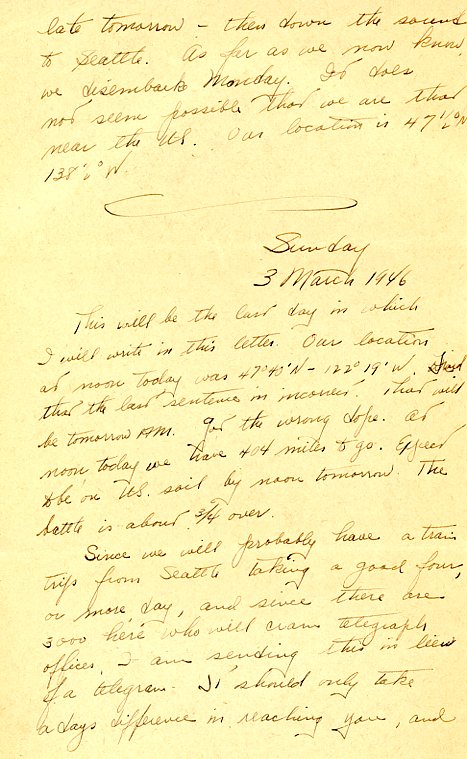 late tomorrow – then down the sound
to Seattle. As far as we now know,
we disembark Monday. It does
not seem possible that we are that
near the US. Our location is 47½°N
138½°W.
Sunday
3 March 1946
This will be the last day in which
I will write in this letter. Our location
at noon today was 47°40'N – 122°19'W.
that the last sentence in incorrect. That will
be tomorrow AM. Got the wrong dope. At
noon today we have 404 miles to go. Expect
to be on US. soil by noon tomorrow. The
battle is about 3/4 over.
Since we will probably have a train
trip from Seattle taking a good four,
or more, day, and since there are
3000 here who will cram telegraph
offices, I am sending this in lieu
of a telegram. It should only take
a days difference in reaching you, and